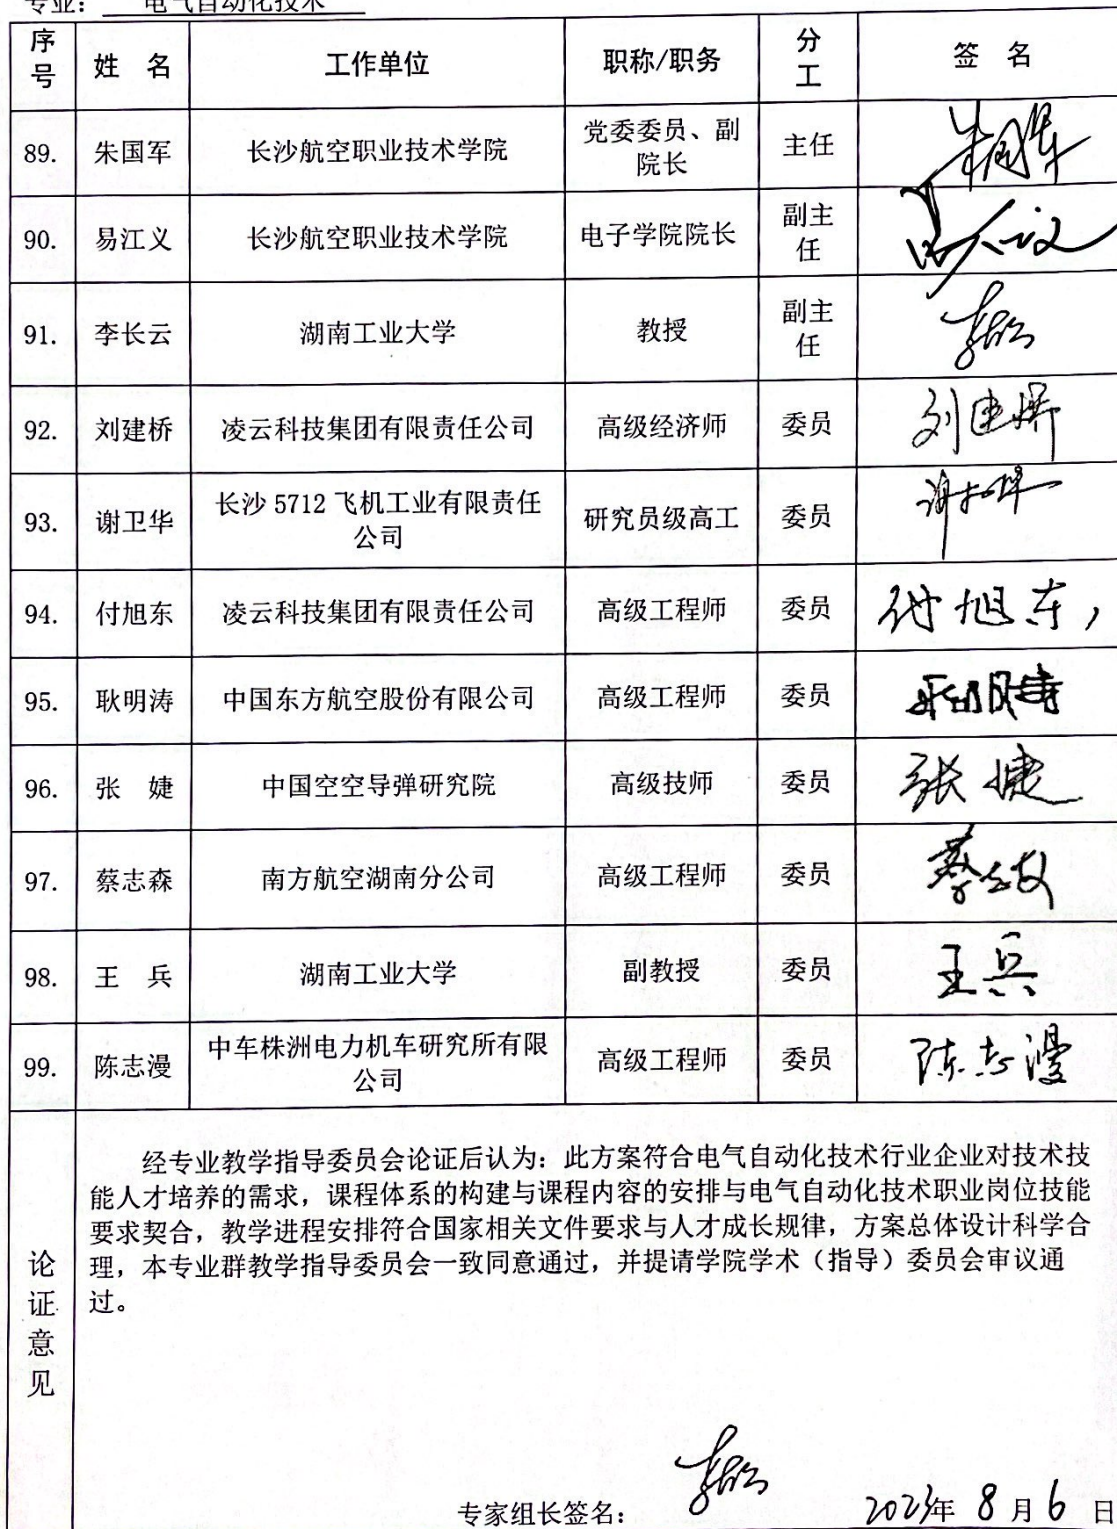 专业： 电气自动化技术
序号 姓 名 工作单位 职称/职务 分工 签 名
89. 朱国军 长沙航空职业技术学院 党委委员、副院长 主任 朱国军
90. 易江义 长沙航空职业技术学院 电子学院院长 副主任
91. 李长云 湖南工业大学 教授 副主任
92. 刘建桥 凌云科技集团有限责任公司 高级经济师 委员 刘建桥
93. 谢卫华 长沙 5712 飞机工业有限责任公司 研究员级高工 委员
94. 付旭东 凌云科技集团有限责任公司 高级工程师 委员 付旭东
95. 耿明涛 中国东方航空股份有限公司 高级工程师 委员
96. 张 婕 中国空空导弹研究院 高级技师 委员 张婕
97. 蔡志森 南方航空湖南分公司 高级工程师 委员
98. 王 兵 湖南工业大学 副教授 委员 王兵
99. 陈志漫 中车株洲电力机车研究所有限公司 高级工程师 委员 陈志漫
论证意见
经专业教学指导委员会论证后认为：此方案符合电气自动化技术行业企业对技术技
能人才培养的需求，课程体系的构建与课程内容的安排与电气自动化技术职业岗位技能
要求契合，教学进程安排符合国家相关文件要求与人才成长规律，方案总体设计科学合
理，本专业群教学指导委员会一致同意通过，并提请学院学术（指导）委员会审议通
过。
专家组长签名： 2023年 8 月 6 日